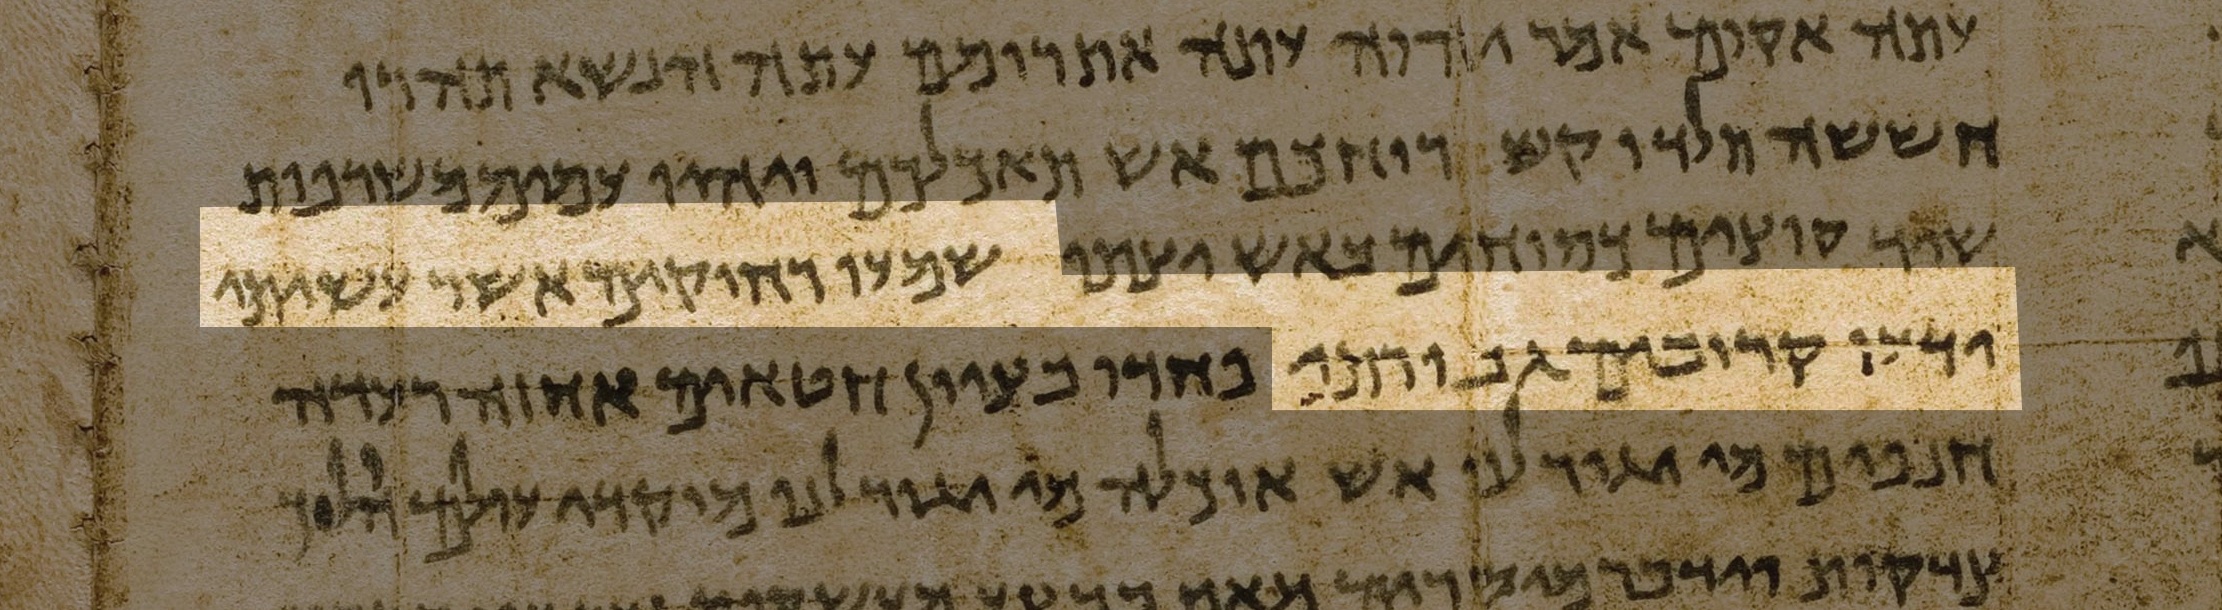 עתה אקום אמר יהוה עתה אתרומם עתה אנשא תהרו
חששה תלדו קש רוחכם אש תאכלכם והיו עמים משרפות
שיד קוצים כסוחים באש יצתו שמעו רחוקים אשר עשיתי
ידעו קרובים גבורתי פחדו בציון חטאים אחזה רעדה
חנפים מי יגור לנו אש אוכלה מי יגור לנו מוקדי עולם הלך
צדקות